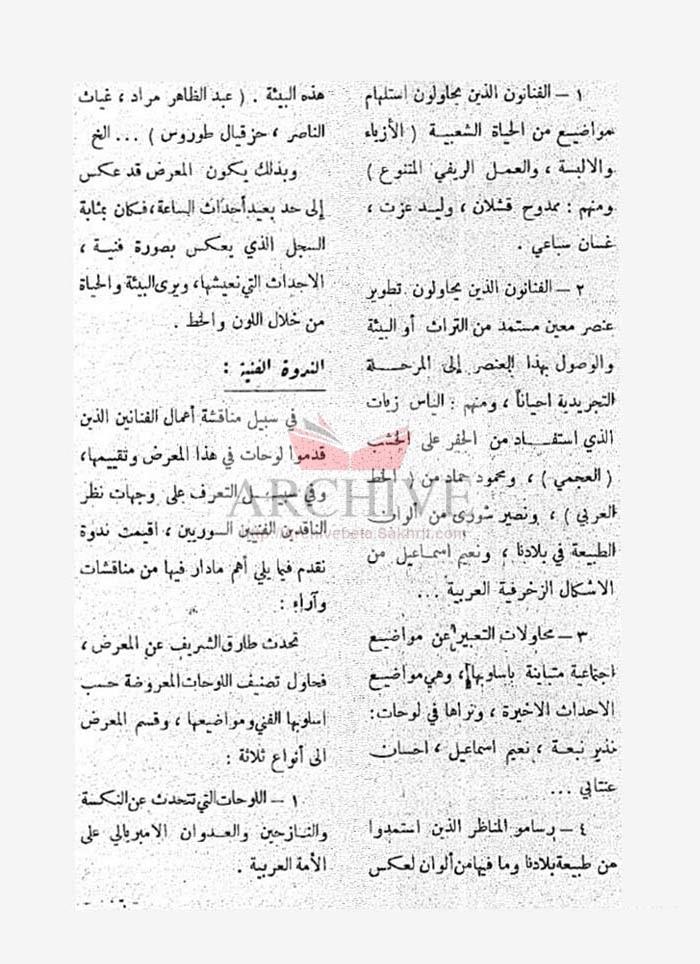 ١ – الفنانون الذين يحاولون استلهام
مواضيع من الحياة الشعبية ( الأزياء
والالبسة ، والعمل الريفي المتنوع )
ومنهم : ممدوح قشلان ، وليد عزت ،
غسان سباعي .
٢ – الفنانون الذين يحاولون تطوير
عنصر معين مستمد من التراث أو البيئة
والوصول بهذا العنصر إلى المرحلة
التجريدية احياناً ، ومنهم : الياس زيات
الذي استفاد من الحفر على الخشب
( العجمي ) ، ومحمود حماد من ( الخط
العربي ) ، ونصير شورى من ألوان
الطبيعة في بلادنا ، ونعيم اسماعيل من
الاشكال الزخرفية العربية ...
٣ – محاولات التعبير عن مواضيع
اجتماعية متباينة باسلوبها ، وهي مواضيع
الاحداث الاخيرة ، ونراها في لوحات :
نذير نبعة ، نعيم اسماعيل ، احسان
عنتابي ...
٤ – رسامو المناظر الذين استمدوا
من طبيعة بلادنا وما فيها من ألوان لعكس
هذه البيئة . ( عبد الظاهر مراد ، غياث
الناصر ، حزقيال طوروس ) ... الخ
وبذلك يكون المعرض قد عكس
إلى حد بعيد أحداث الساعة ، فكان بمثابة
السجل الذي يعكس بصورة فنية ،
الاحداث التي نعيشها ، ويرى البيئة والحياة
من خلال اللون والخط .
الندوة الفنية :
في سبيل مناقشة أعمال الفنانين الذين
قدموا لوحات في هذا المعرض وتقييمها ،
وفي سبيل التعرف على وجهات نظر
الناقدين الفنيين السوريين ، اقيمت ندوة
نقدم فيما يلي أهم مادار فيها من مناقشات
وآراء :
تحدث طارق الشريف عن المعرض ،
فحاول تصنيف اللوحات المعروضة حسب
اسلوبها الفني ومواضيعها ، وقسم المعرض
الى أنواع ثلاثة :
١ – اللوحات التي تتحدث عن النكسة
والنازحين والعدوان الامبريالي على
الأمة العربية .
ARCHIVE
http://Archivebeta.Sakhrit.com